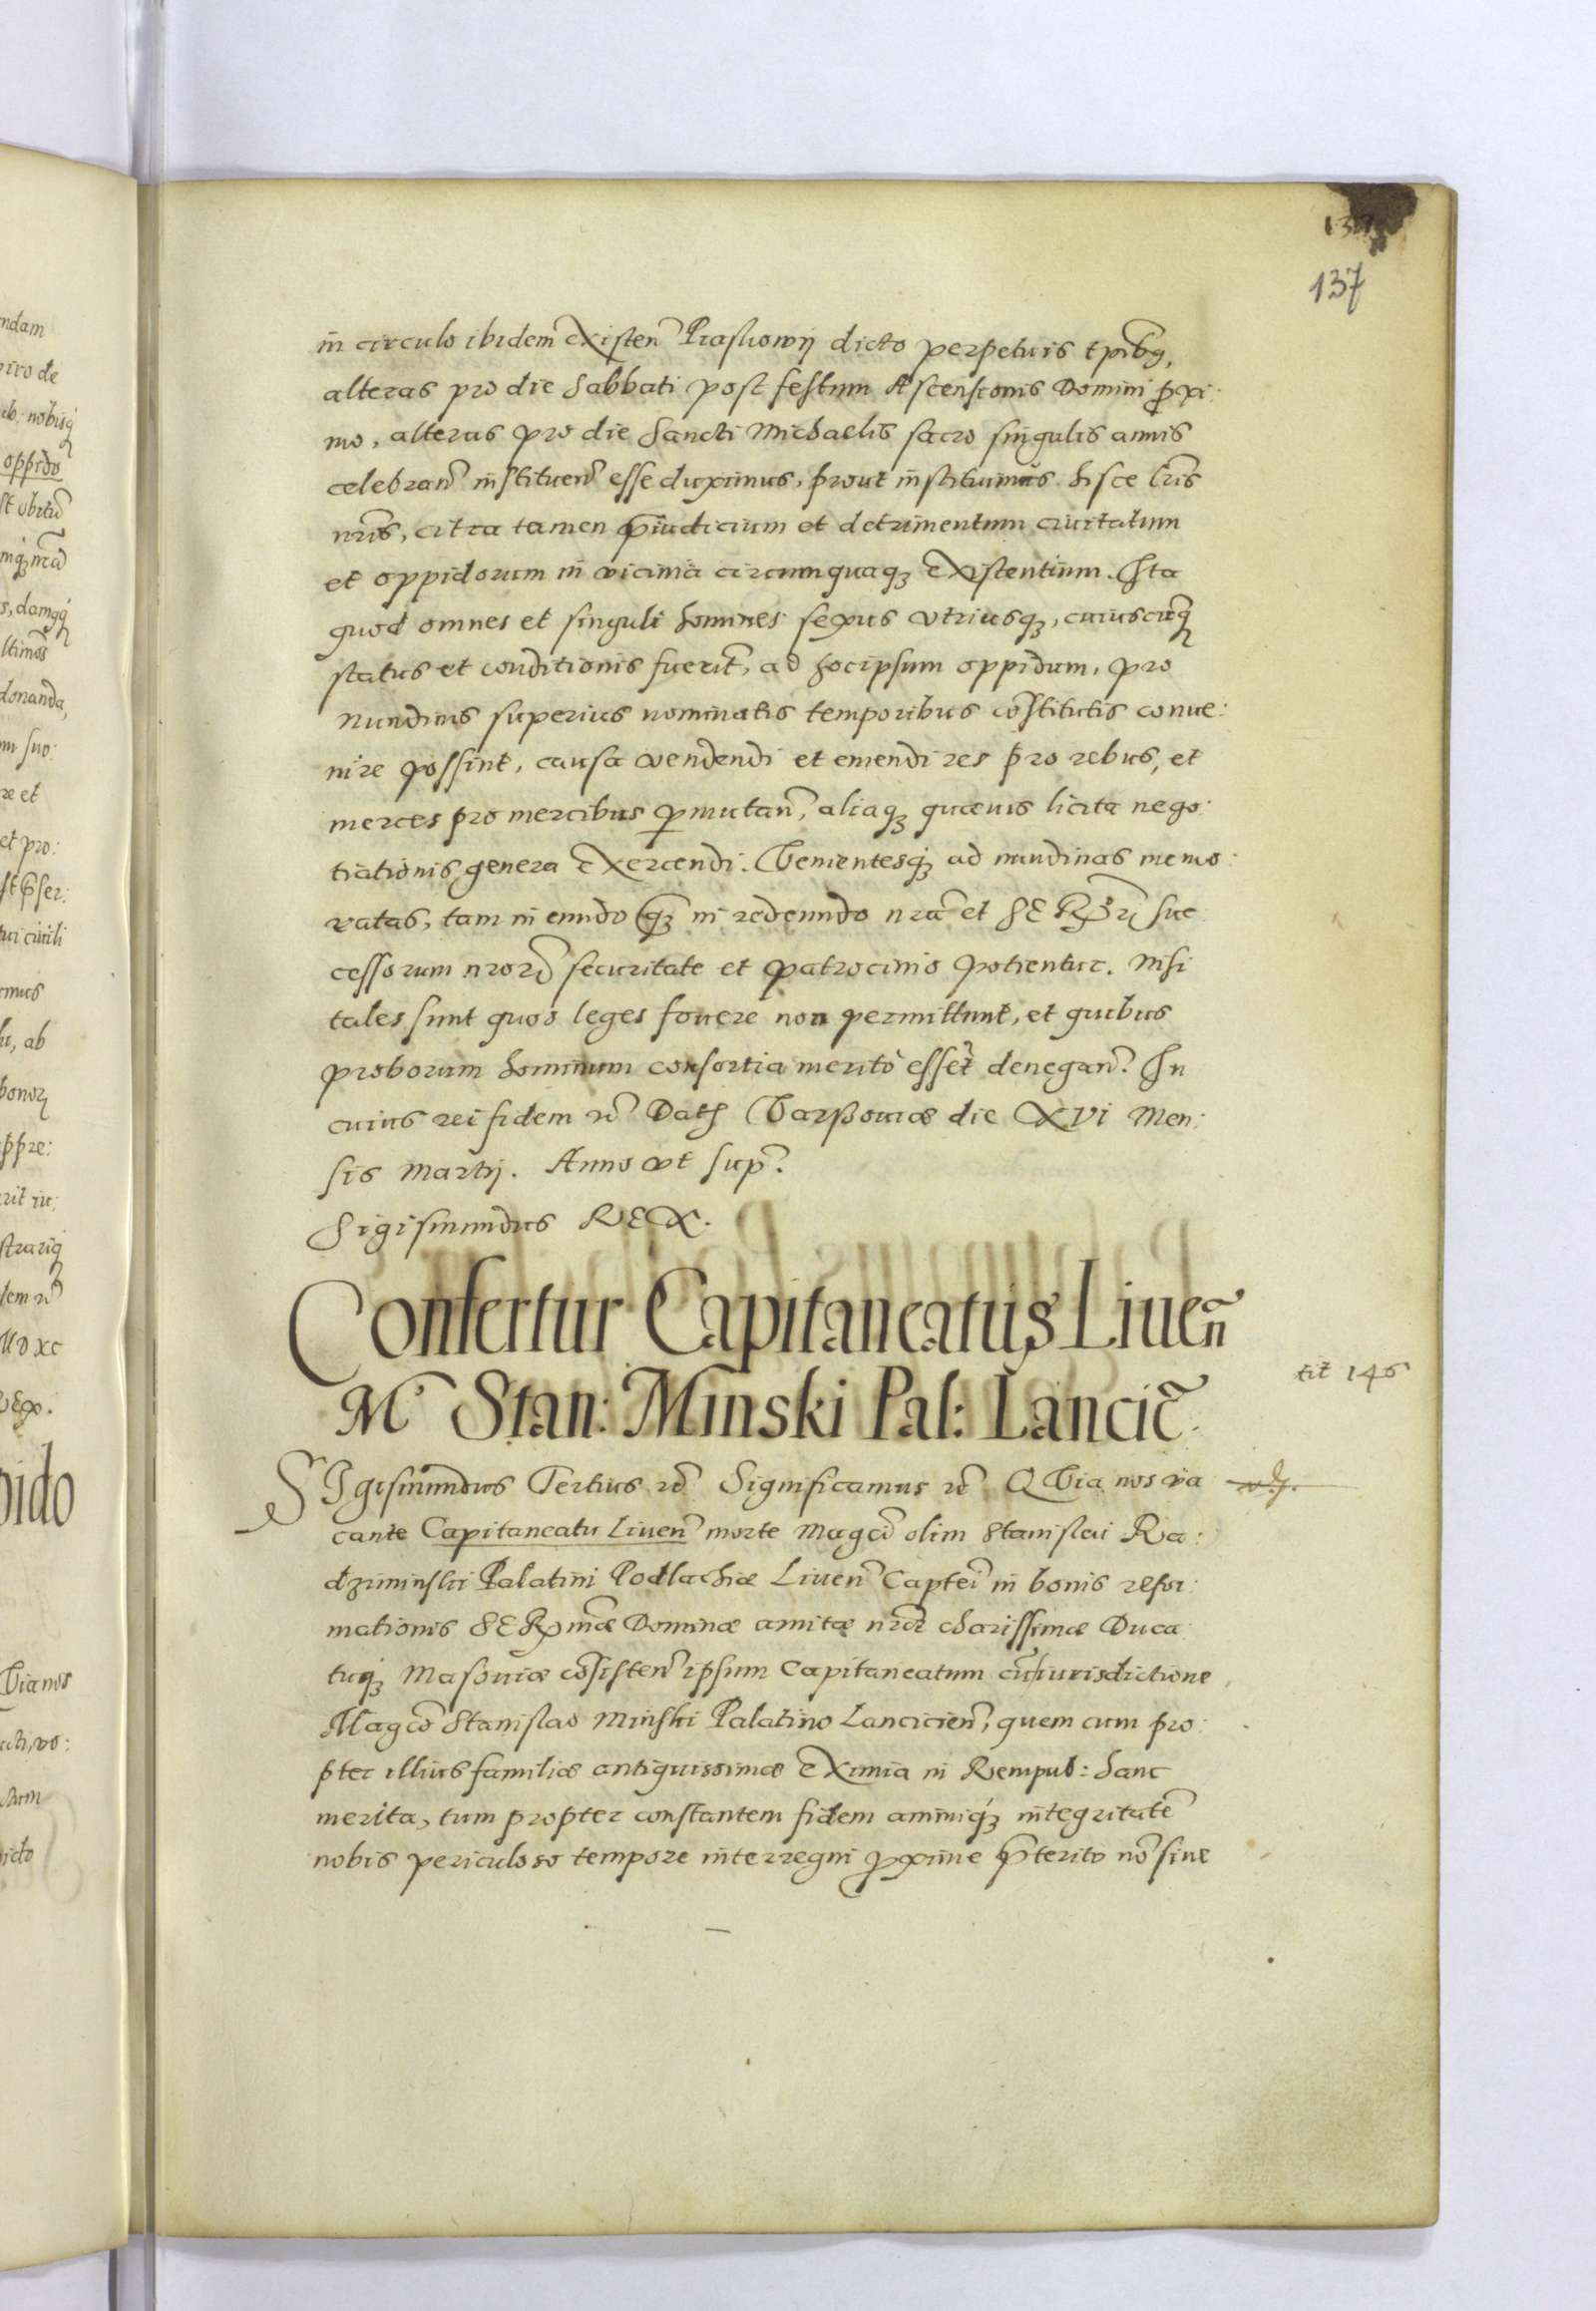 137
137
in circulo ibidem existen̄ Piaskowÿ dicto perpetuis tp̄ibq,
alteras pro die Sabbati post festum Ascensionis Domini p̄xi:
mo, alteras pro die Sancti Michaelis sacro singulis annis
celebran̄ instituen̄ esse duximus, prout instituimus hisce lr̄is
nr̄is, citra tamen p̄iudicium et detrimentum civitatum
et oppidorum in vicinia circumquaqꝫ existentium. Ita
quod omnes et singuli homines sexus vtriusqꝫ, cuiuscūqꝫ
status et conditionis fuerit̄, ad hoc ipsum oppidum, pro
nundinis superius nominatis temporibus cōstitutis conue:
nire possint, causa vendendi et emendi res pro rebus, et
merces pro mercibus ꝑmutan̄, aliaqꝫ quæuis licita nego:
tiationis genera exercendi. Venientesqꝫ ad nundinas memo:
ratas, tam in eundo q̄ꝫ in redeundo nrā et SERPRꝫ suc
cessorum nrorꝫ securitate et patrocinio potientur. Nisi
tales sunt quos leges fouere non permittunt, et quibus
proborum hominum consortia meritò esset̄ denegan̄. In
cuius rei fidem ꝛc̄ Datꝫ Varßouiæ die XVI Men:
sis Martij. Anno vt sup̄.
Sigismundus REX.
Confertur Capitaneatus Liuen̄
M Stan: Minski Pal: Lancic̄.
tit 146
SIgismundus Tertius ꝛc̄ Significamus ꝛc̄ QVia nos va
cante Capitaneatu Liuen̄ morte Magcī olim Stanislai Ra:
dziminski Palatini Podlachiæ Liuen̄ Captei in bonis refor:
mationis SERmæ Dominæ amitæ nræ charissimæ Duca
tuqꝫ Masouiæ cōsisten̄ ipsum Capitaneatum cū iurisdictione
Magco Stanislao Minski Palatino Lancicien̄, quem cum pro:
pter illius familiæ antiquissimæ eximia in Rempub: hanc
merita, tum propter constantem fidem animiqꝫ integritatē
nobis periculoso tempore interregni ꝓxime p̄terito nō sine